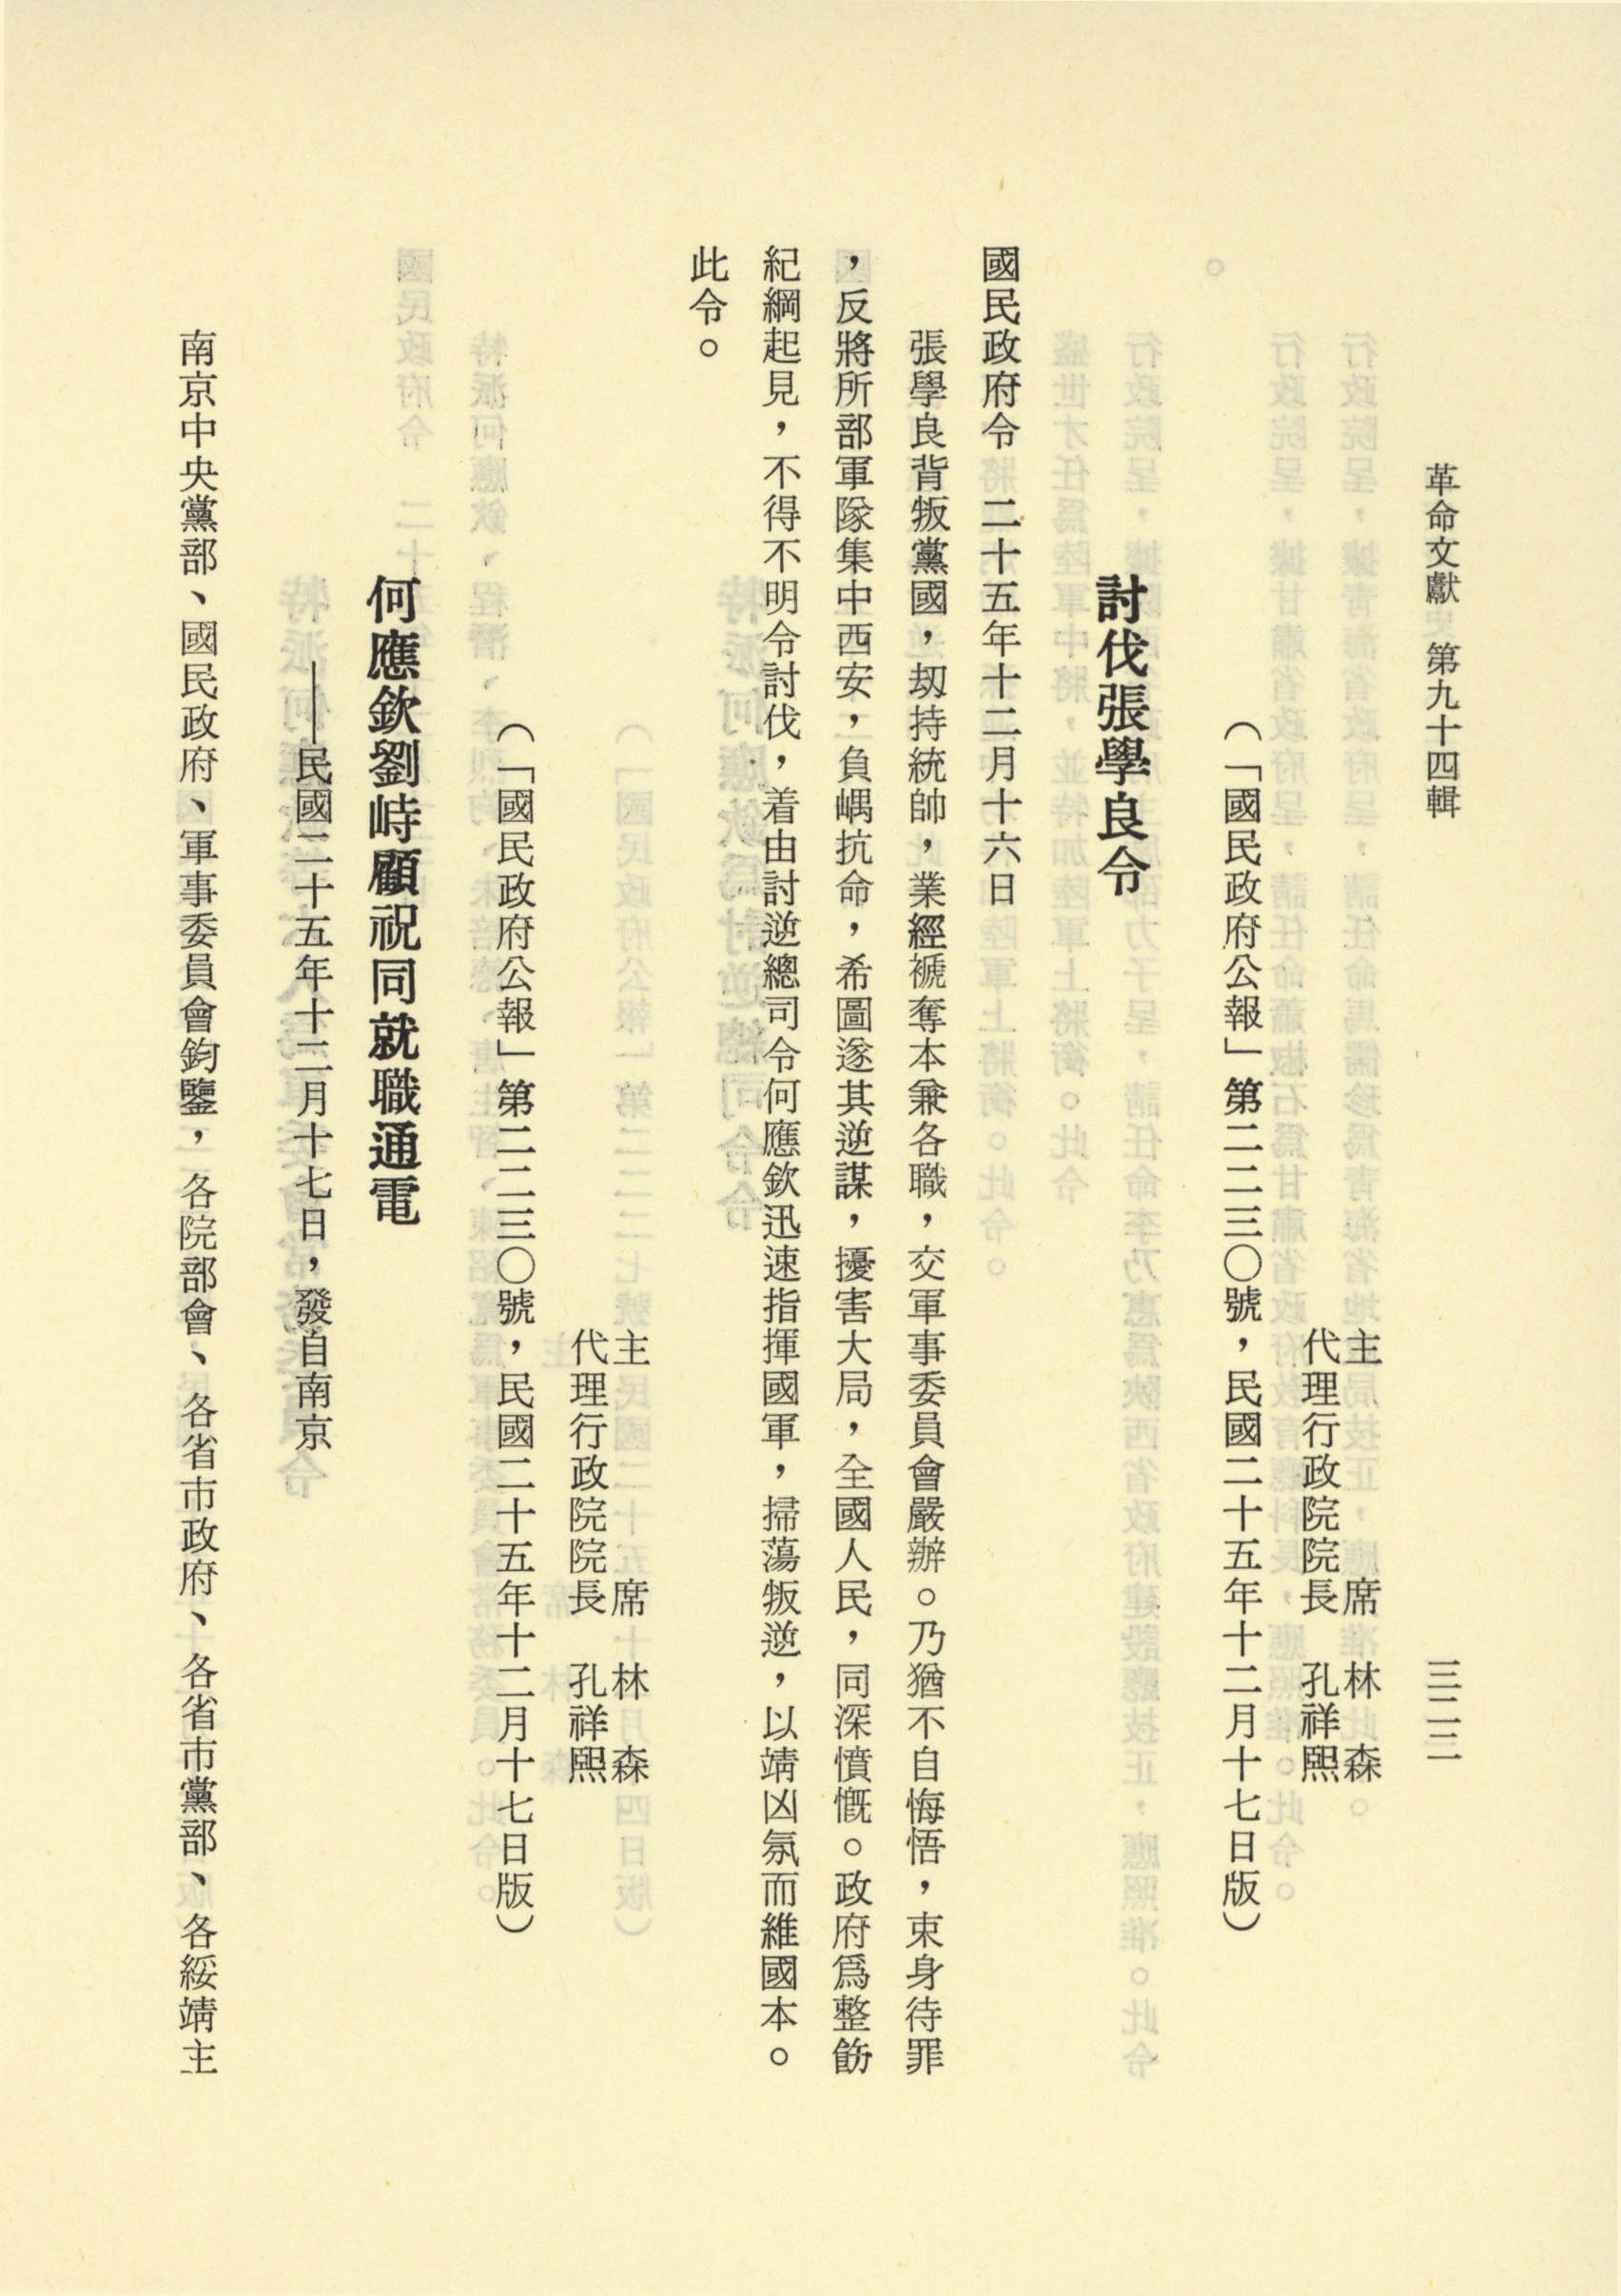 革命文獻　第九十四輯　三二二
主　席　林　森
代理行政院院長　孔祥熙
（「國民政府公報」第二二三〇號，民國二十五年十二月十七日版）
討伐張學良令
國民政府令　二十五年十二月十六日
張學良背叛黨國，刼持統帥，業經褫奪本兼各職，交軍事委員會嚴辦。乃猶不自悔悟，束身待罪
，反將所部軍隊集中西安，負嵎抗命，希圖遂其逆謀，擾害大局，全國人民，同深憤慨。政府爲整飭
紀綱起見，不得不明令討伐，着由討逆總司令何應欽迅速指揮國軍，掃蕩叛逆，以靖凶氛而維國本。
此令。
主　席　林　森
代理行政院院長　孔祥熙
（「國民政府公報」第二二三〇號，民國二十五年十二月十七日版）
何應欽劉峙顧祝同就職通電
——民國二十五年十二月十七日，發自南京
南京中央黨部、國民政府、軍事委員會鈞鑒，各院部會、各省市政府、各省市黨部、各綏靖主